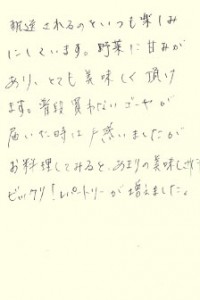 配達されるのといつも楽しみ
にしています。野菜に甘みが
あり、とても美味しく頂け
ます。普段買わないゴーヤが
届いた時は戸惑いましたが
お料理してみると、あまりの美味しさに
ビックリ!レパートリーが増えました。